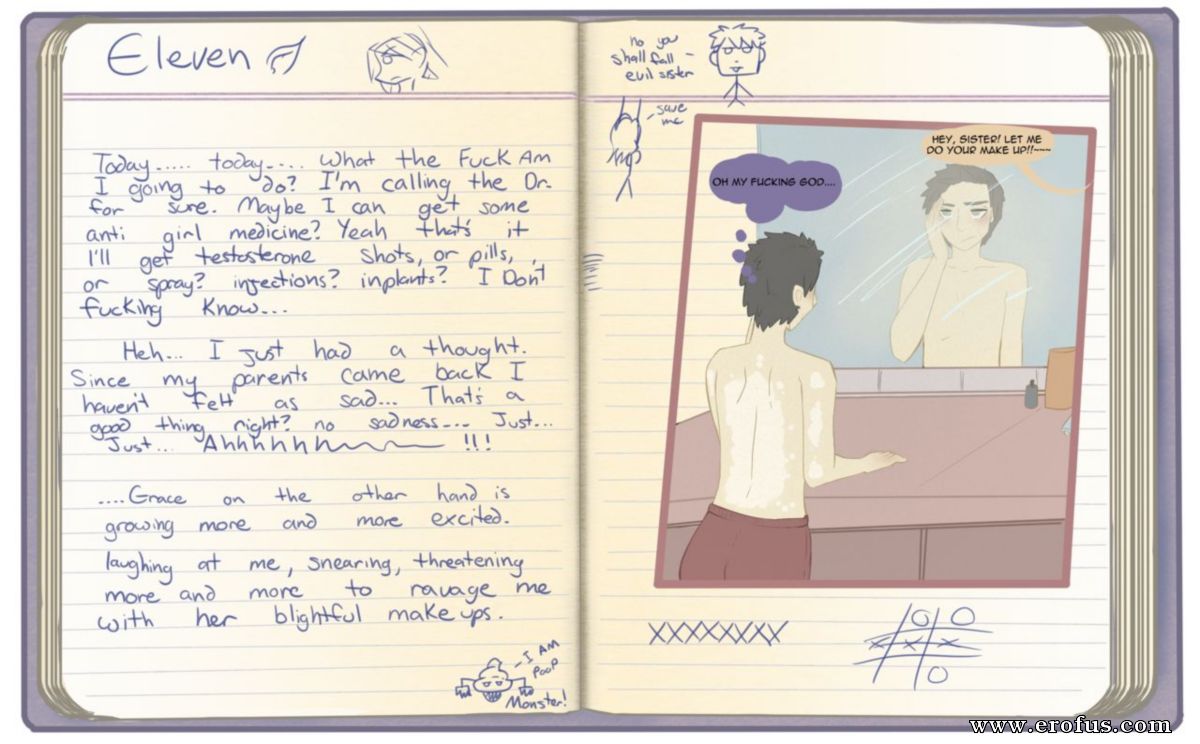 Eleven
Today..... today.... What the Fuck Am
I going to do? I'm calling the Dr.
for sure. Maybe I can get some
anti girl medicine? Yeah that's it
I'll get testosterone shots, or pills, ,
or spray? injections? inplants? I Don't
fucking Know...
Heh... I just had a thought.
Since my parents came back I
haven't felt as sad... That's a
good thing right? no sadness... Just...
Just... Ahhhhhh !!!
....Grace on the other hand is
growing more and more excited.
laughing at me, snearing, threatening
more and more to ravage me
with her blightful make ups.
I AM
POOP
Monster!
no you
shall fall
evil sister
save
me
HEY, SISTER! LET ME
DO YOUR MAKE UP!!~~~
OH MY FUCKING GOD....
XXXXXXXX
O O
X X X
O
www.erofus.com